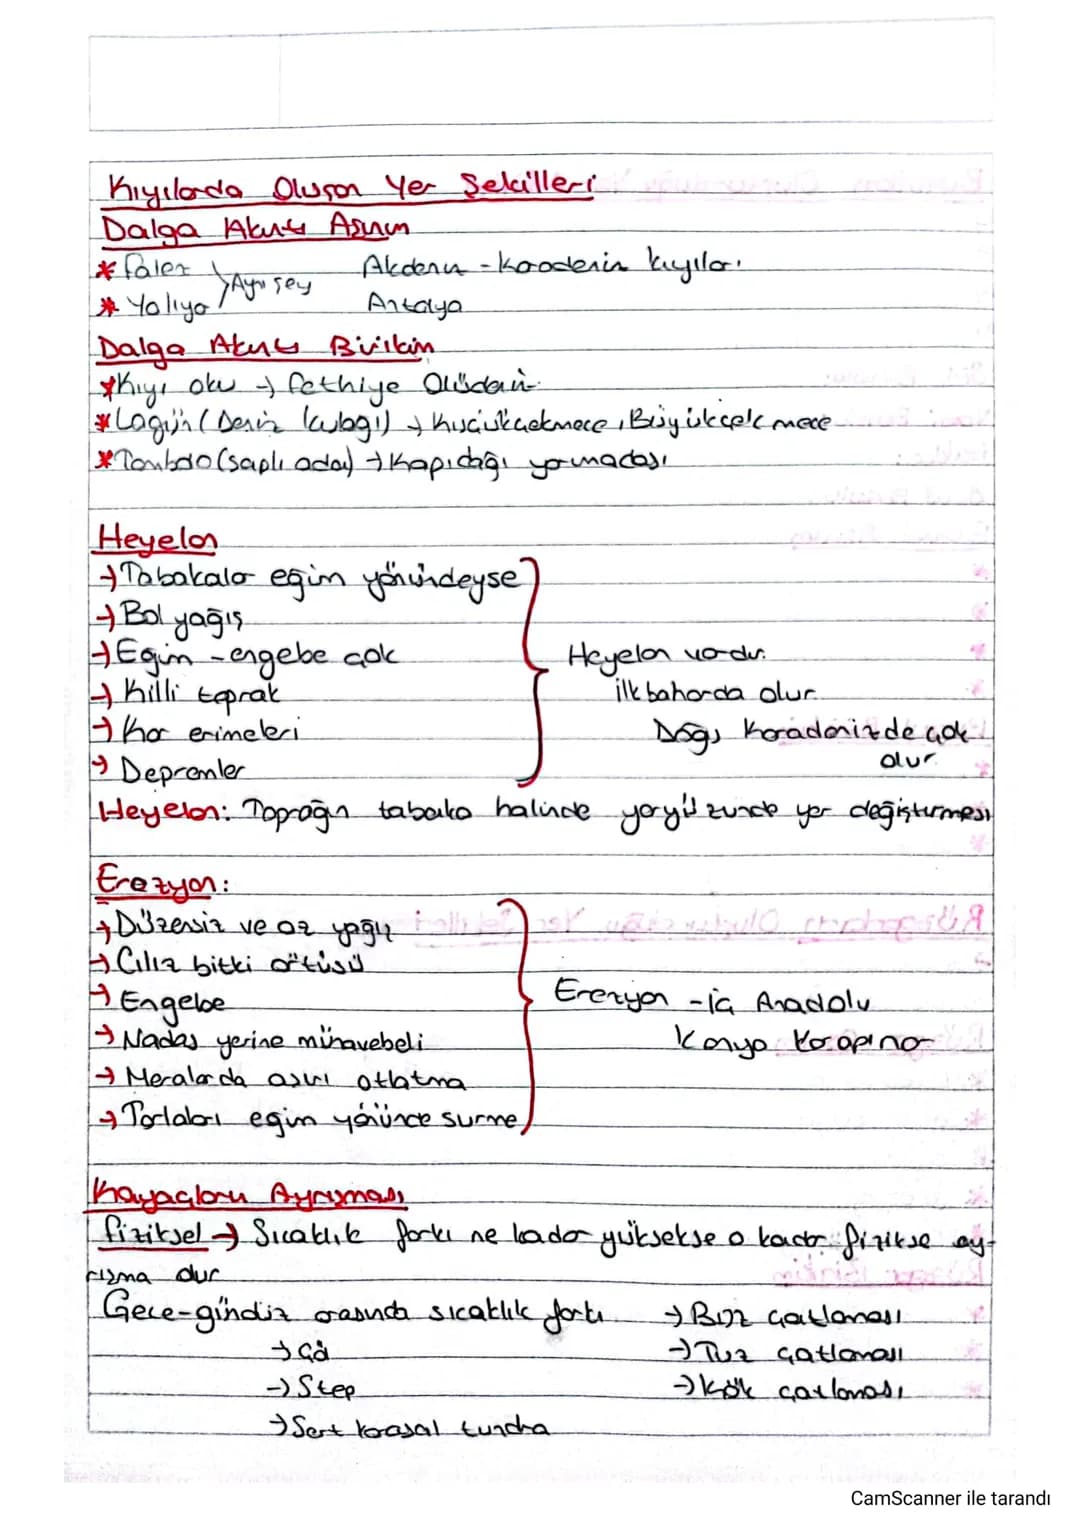 Kıyılarda Oluşan Yer Şekilleri
Dalga Akıntı Aşınım
* falez
* Yalıyar
Aynı şey
Akdeniz - Karadeniz kıyıları
Antalya
Dalga Akıntı Birikim
* Kıyı oku → fethiye Ölüdeniz
* Lagün (Deniz kulağı) → Küçükçekmece, Büyükçekmece
* Tombolo (saplı ada) → Kapıdağı yarımadası
Heyelan
→ Tabakalar eğim yönündeyse
→ Bol yağış
→ Eğim - engebe çok
→ Killi toprak
→ Kar erimeleri
→ Depremler
Heyelan vardır.
ilkbaharda olur.
Doğu Karadenizde çok
olur.
Heyelan: Toprağın tabaka halinde yeryüzünde yer değiştirmesi
Erozyon:
→ Düzensiz ve az yağış
→ Cılız bitki örtüsü
→ Engebe
→ Nadas yerine münavebeli
→ Meralarda aşırı otlatma
→ Tarlaları eğim yönünce sürme
Erozyon - iç Anadolu
Konya Karapınar
Kayaçların Ayrışması
fiziksel → Sıcaklık farkı ne kadar yüksekse o kadar fizikse ay-
rışma olur
Gece-gündüz arasında sıcaklık farkı
→ Çöl
→ Step
→ Sert karasal tundra
→ Buz çatlaması
→ Tuz çatlaması
→ Kök çatlaması
CamScanner ile tarandı